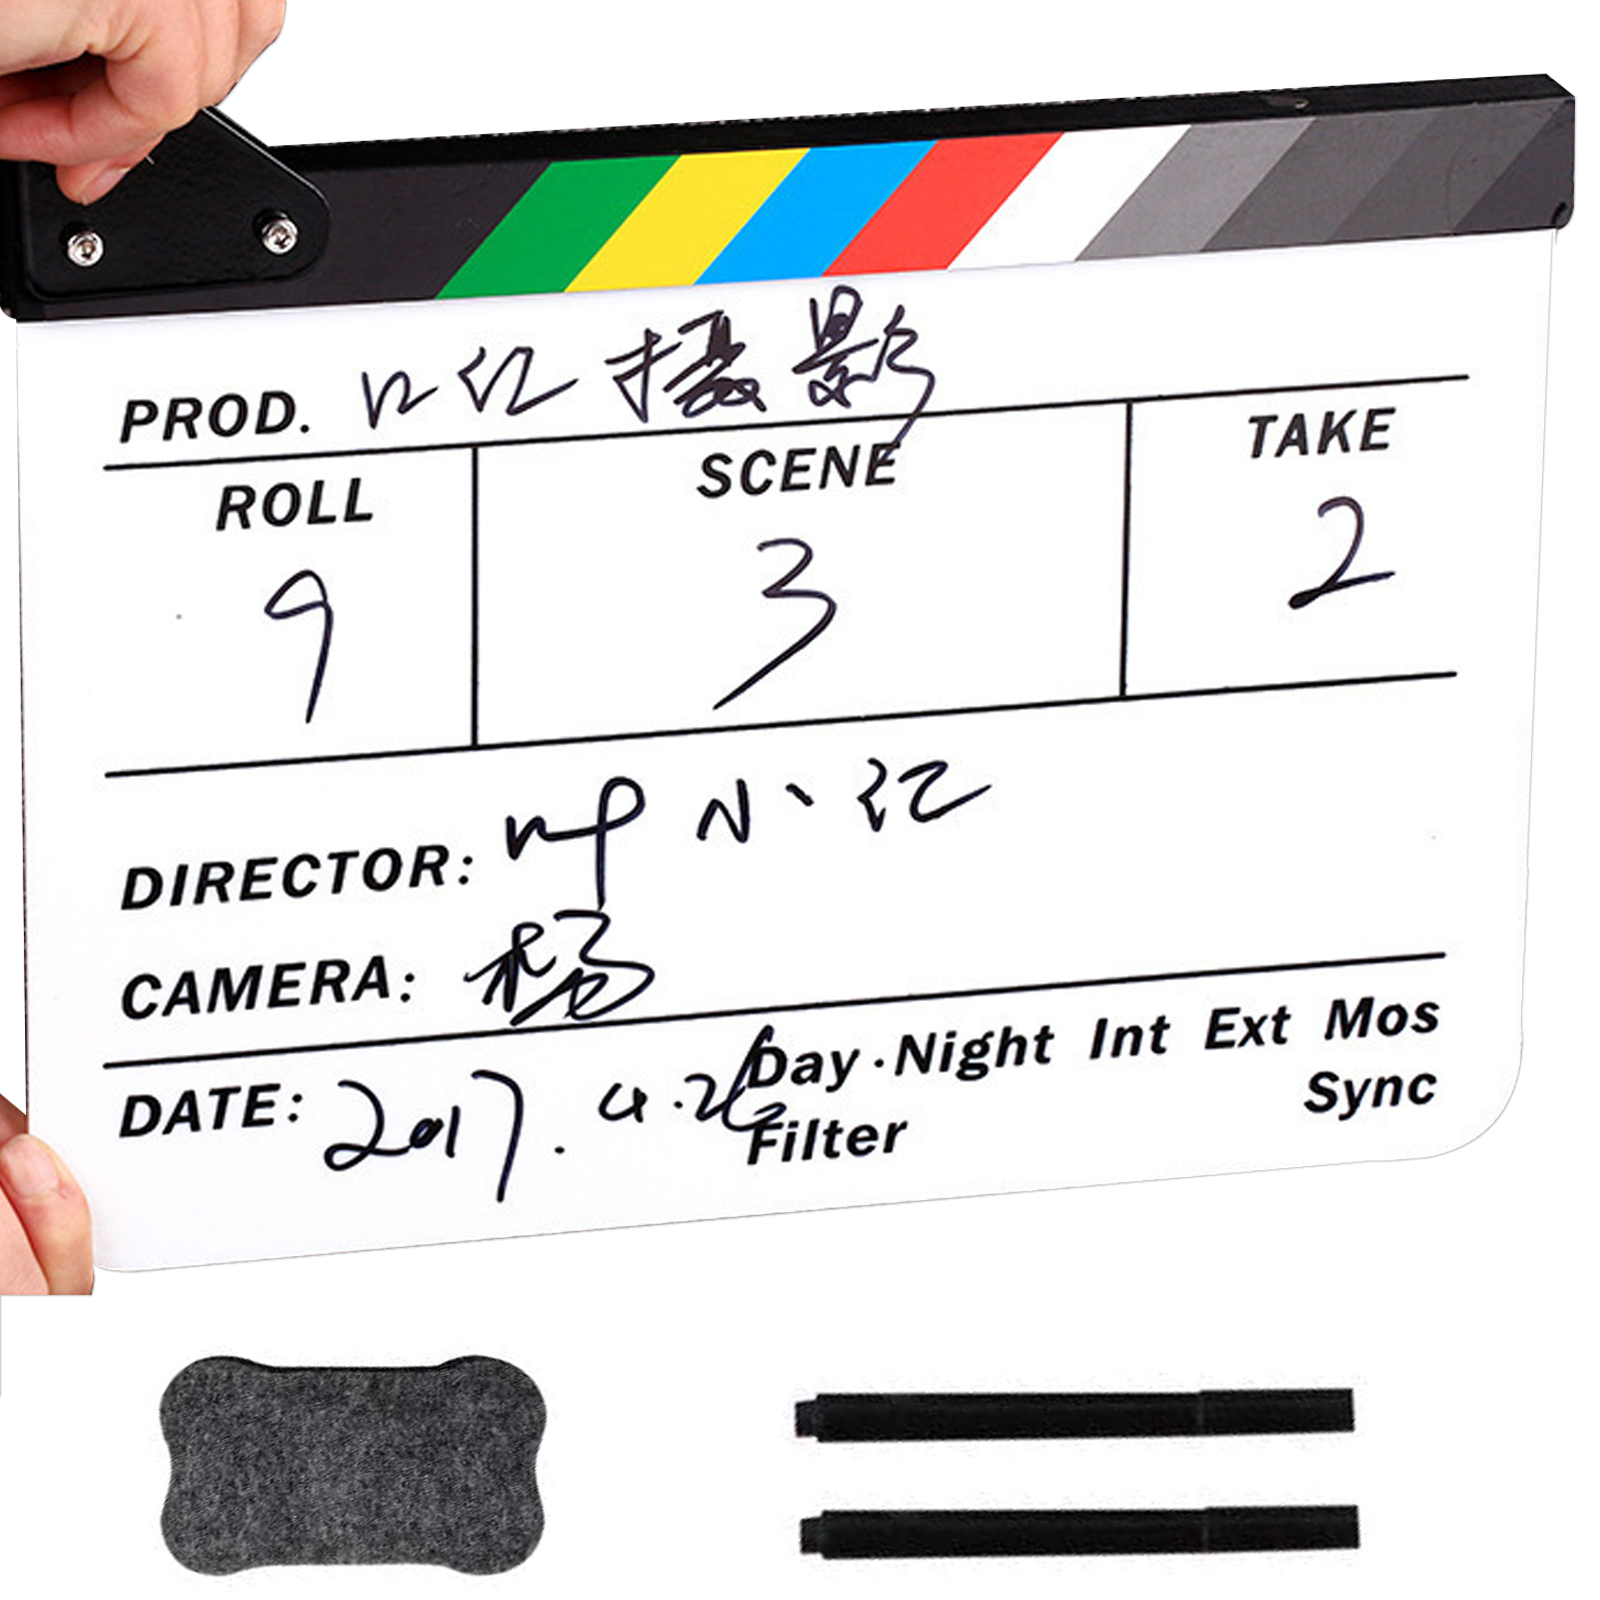 PROD. 摄影
ROLL SCENE TAKE
9 3 2
DIRECTOR: 叶小红
CAMERA: 杨
DATE: 2017.4.26 Day·Night Int Ext Mos
Filter Sync